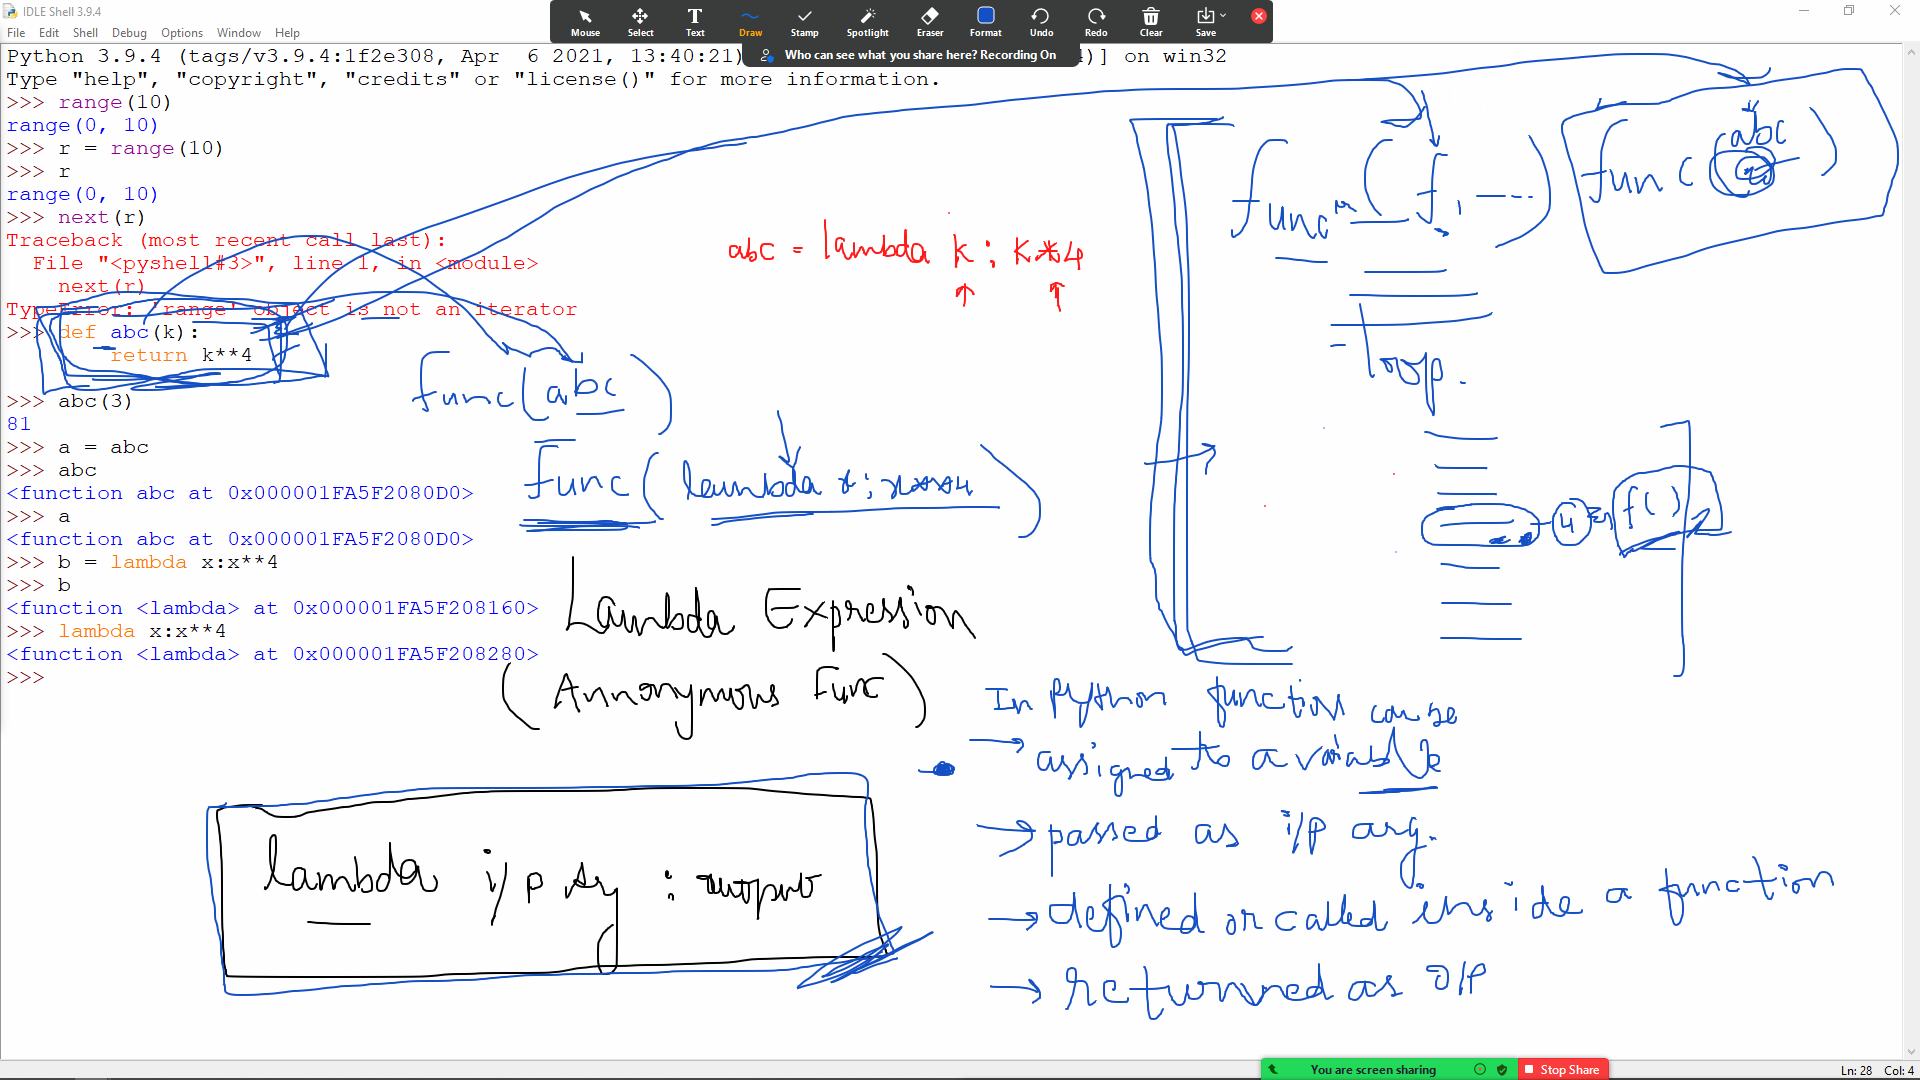 IDLE Shell 3.9.4
File Edit Shell Debug Options Window Help
Mouse Select Text Draw Stamp Spotlight Eraser Format Undo Redo Clear Save
Who can see what you share here? Recording On
Python 3.9.4 (tags/v3.9.4:1f2e308, Apr  6 2021, 13:40:21) 4)] on win32
Type "help", "copyright", "credits" or "license()" for more information.
>>> range(10)
range(0, 10)
>>> r = range(10)
>>> r
range(0, 10)
>>> next(r)
Traceback (most recent call last):
  File "<pyshell#3>", line 1, in <module>
    next(r)
TypeError: 'range' object is not an iterator
>>> def abc(k):
        return k**4

>>> abc(3)
81
>>> a = abc
>>> abc
<function abc at 0x000001FA5F2080D0>
>>> a
<function abc at 0x000001FA5F2080D0>
>>> b = lambda x:x**4
>>> b
<function <lambda> at 0x000001FA5F208160>
>>> lambda x:x**4
<function <lambda> at 0x000001FA5F208280>
>>>
abc = lambda k : k**4
func(abc)
func(lambda x:x**4)
Lambda Expression
(Annonymous Func)
lambda i/p arg : output
func (f, ----)
loop.
func(abc)
4 f()
In Python function can be
→ assigned to a variable
→ passed as i/p arg.
→ defined or called inside a function
→ returned as o/p
You are screen sharing Stop Share
Ln: 28 Col: 4